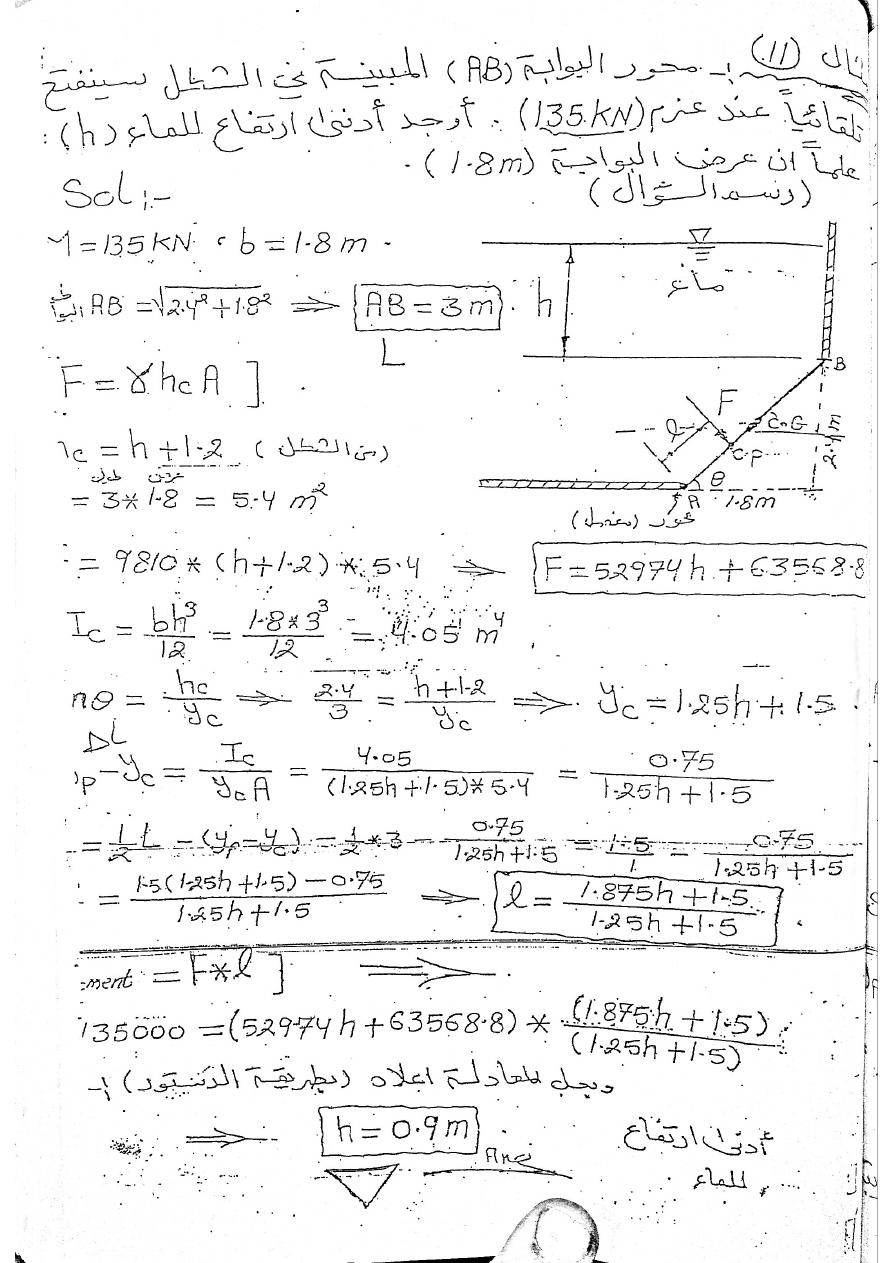 مثال (11) :- محور البوابة (AB) المبينة في الشكل سينفتح
تلقائياً عند عزم (135 KN) . أوجد أدنى ارتفاع للماء (h) :
علماً ان عرض البوابة (1.8m) .
Sol :-
(رسم السؤال)
M = 135 KN , b = 1.8 m .
ماء
h
AB = √2.4² + 1.8² ⇒ AB = 3 m
L
B
F = γ hc A ] .
F
l
C.G
C.P
2.4 m
θ
A
1.8m
محور (مفصل)
hc = h + 1.2 (من الشكل)
طول عرض
= 3 * 1.8 = 5.4 m²
= 9810 * (h + 1.2) * 5.4 ⇒ F = 52974 h + 63568.8
Ic = bh³/12 = 1.8 * 3³/12 = 4.05 m⁴
nθ = hc/yc ⇒ 2.4/3 = h + 1.2/yc ⇒ yc = 1.25h + 1.5 .
ΔL
yp - yc = Ic/yc A = 4.05/(1.25h + 1.5) * 5.4 = 0.75/1.25h + 1.5
= 1/2 L - (yp - yc) = 1/2 * 3 - 0.75/1.25h + 1.5 = 1.5/1 - 0.75/1.25h + 1.5
= 1.5(1.25h + 1.5) - 0.75/1.25h + 1.5 ⇒ l = 1.875h + 1.5/1.25h + 1.5 .
ment = F * l ] ⇒
135000 = (52974 h + 63568.8) * (1.875h + 1.5)/(1.25h + 1.5)
وبحل المعادلة اعلاه (بطريقة الدستور) :-
⇒ h = 0.9 m
Ans
أدنى ارتفاع
للماء